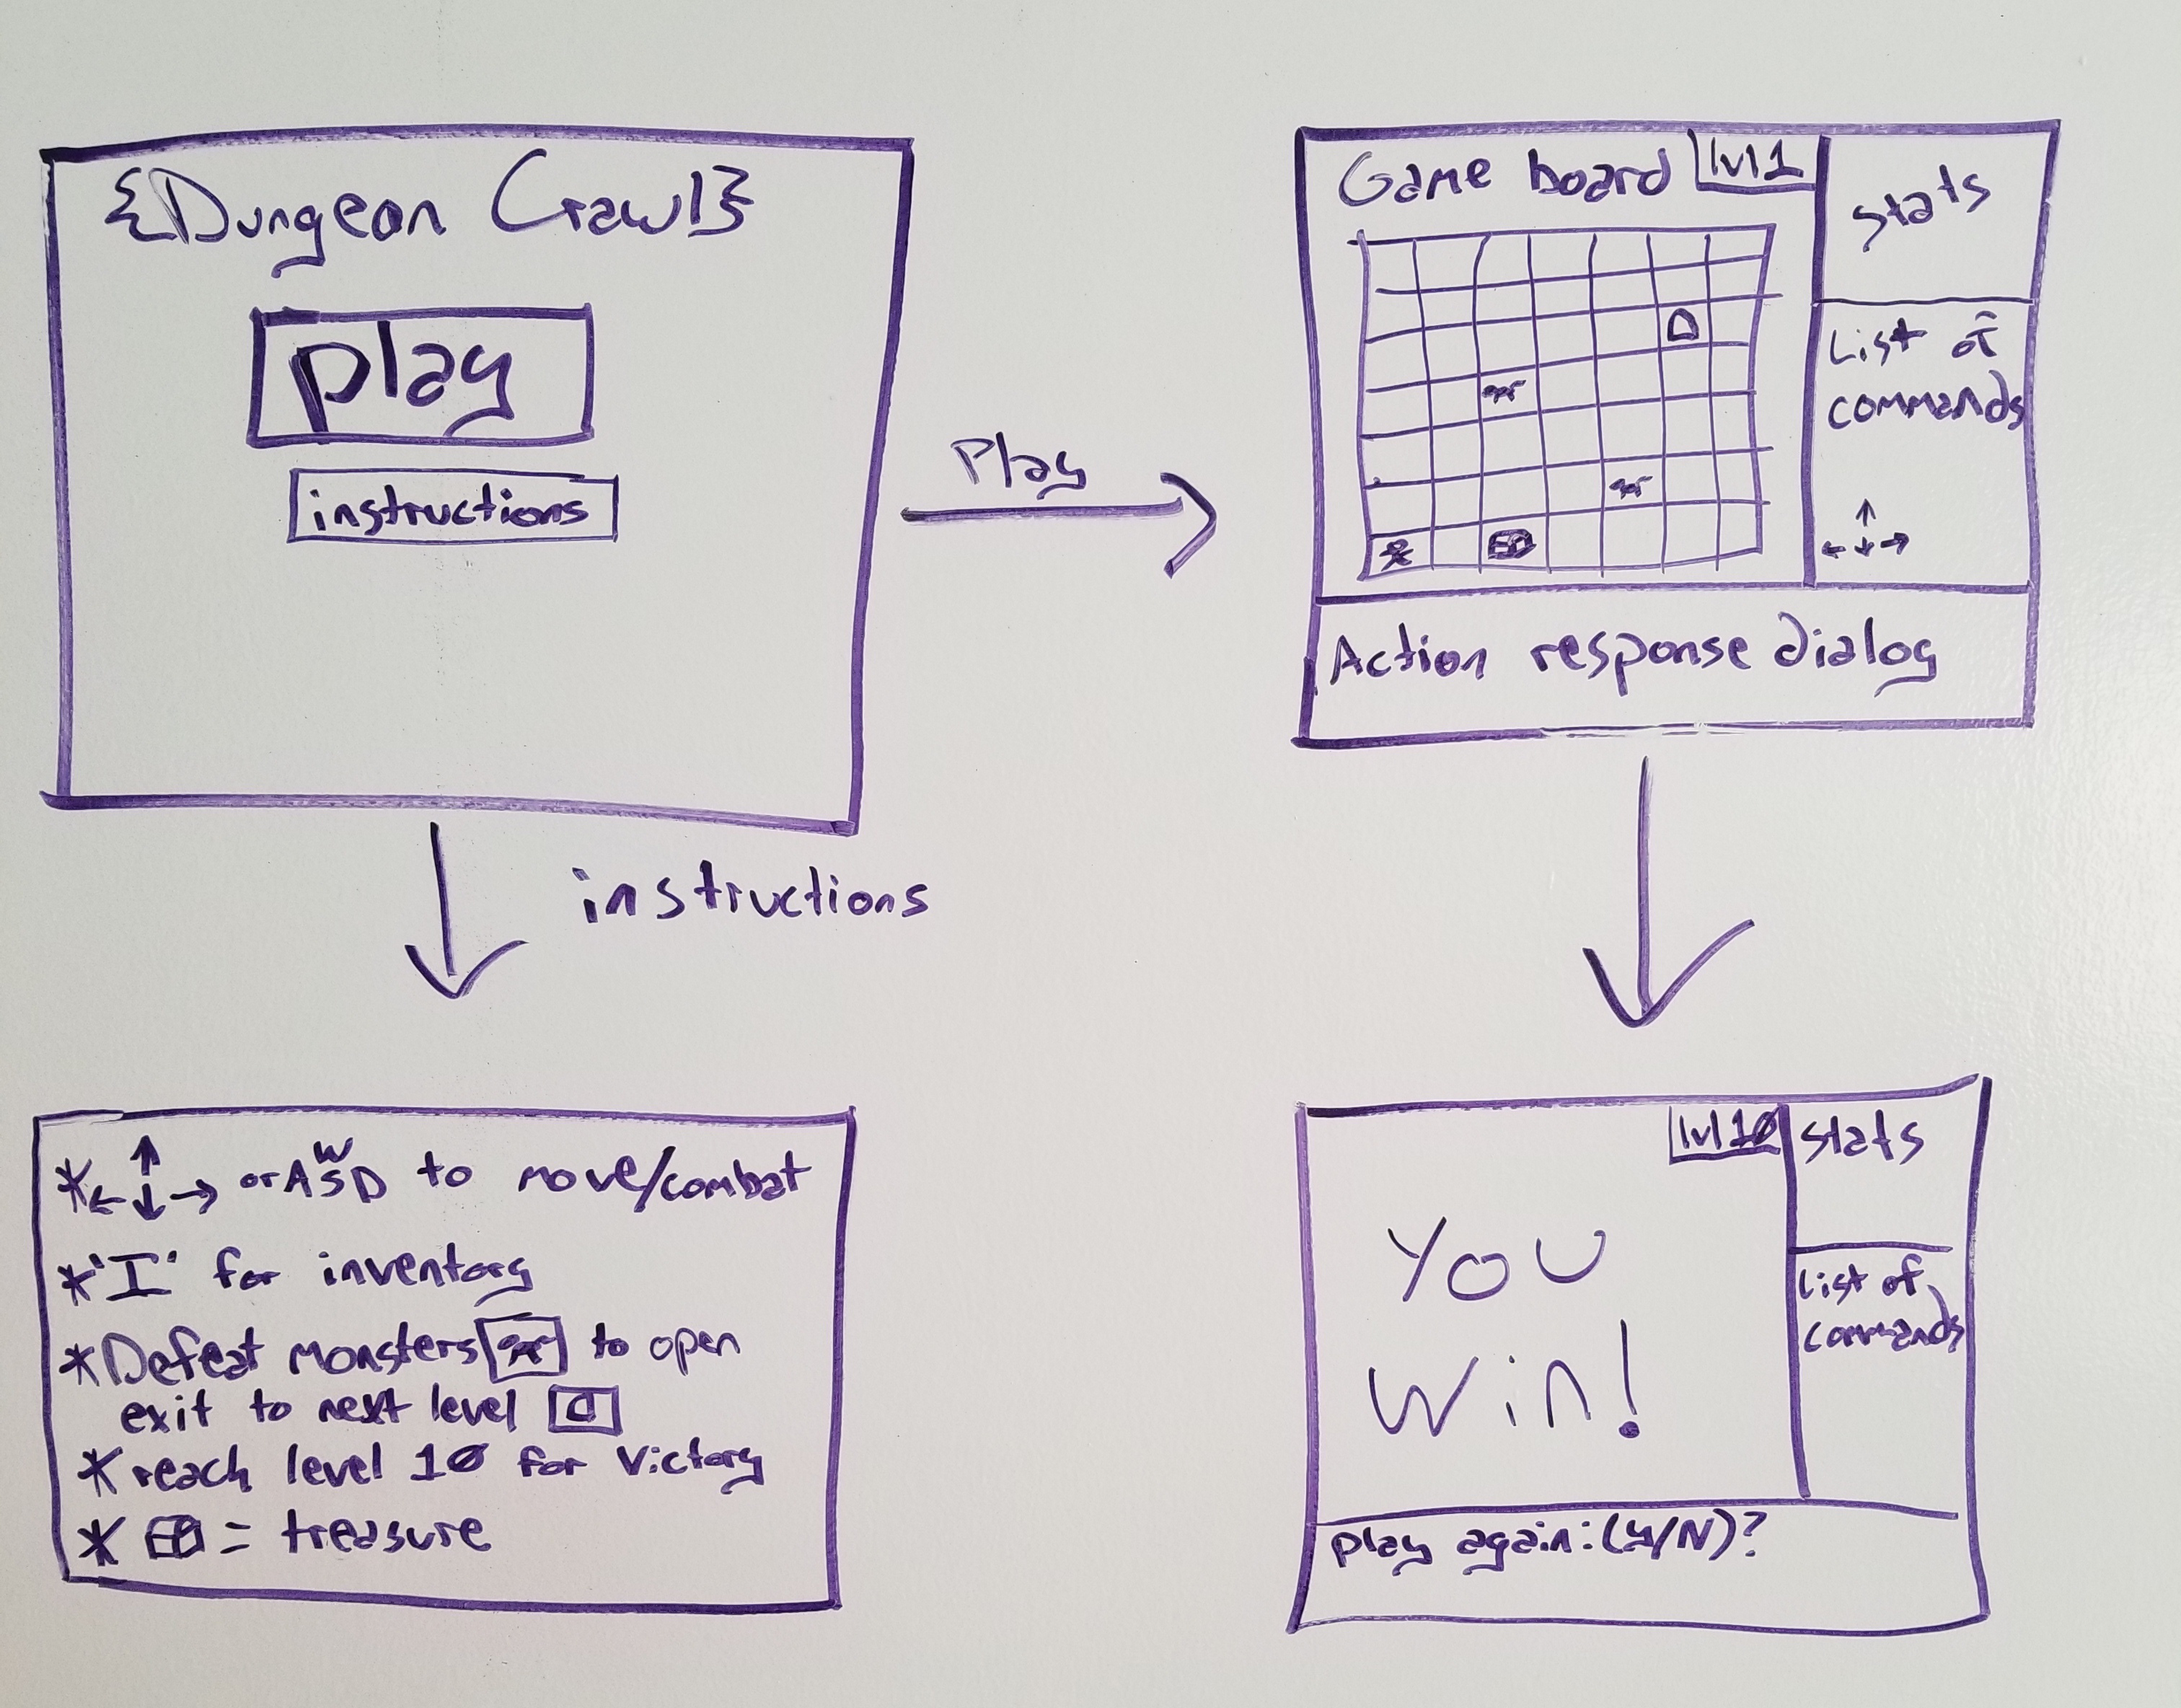 {Dungeon Crawl}
play
instructions
Play
Game board
lvl 1
stats
List of
commands
↑
← ↓ →
Action response dialog
instructions
* ← ↑ ↓ → or A W S D to move/combat
* 'I' for inventory
* Defeat monsters to open
exit to next level
* reach level 10 for Victory
* = treasure
lvl 10
stats
List of
commands
YOU
Win!
play again: (y/N)?